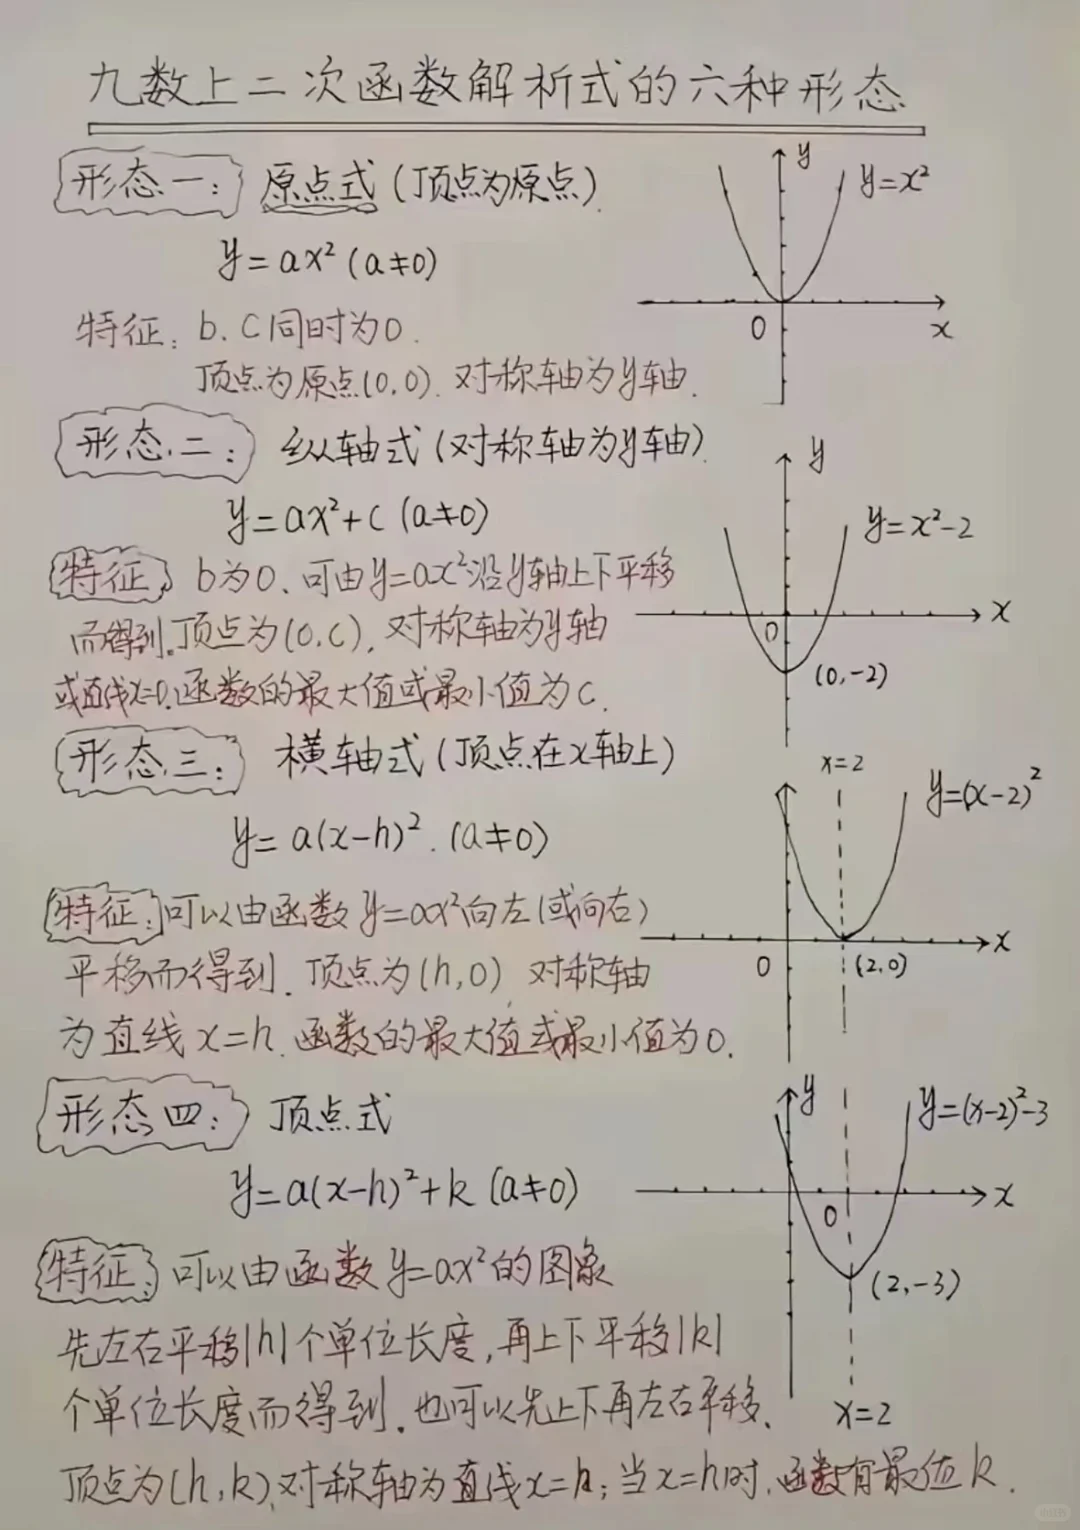 九数上二次函数解析式的六种形态
形态一: 原点式(顶点为原点)
y=ax²(a≠0)
特征: b.c同时为0.
顶点为原点(0,0). 对称轴为y轴.
y
y=x²
0
x
形态二: 纵轴式(对称轴为y轴).
y=ax²+c(a≠0)
特征 b为0. 可由y=ax²沿y轴上下平移
而得到.顶点为(0,c), 对称轴为y轴
或直线x=0.函数的最大值或最小值为c.
y
y=x²-2
x
0
(0,-2)
形态三: 横轴式(顶点在x轴上)
y=a(x-h)².(a≠0)
特征:可以由函数y=ax²向左(或向右)
平移而得到. 顶点为(h,0) 对称轴
为直线x=h.函数的最大值或最小值为0.
x=2
y=(x-2)²
x
0
(2,0)
形态四: 顶点式
y=a(x-h)²+k(a≠0)
特征: 可以由函数y=ax²的图象
先左右平移|h|个单位长度,再上下平移|k|
个单位长度而得到.也可以先上下再左右平移.
顶点为(h,k).对称轴为直线x=h;当x=h时.函数有最值k.
y
y=(x-2)²-3
x
0
(2,-3)
x=2